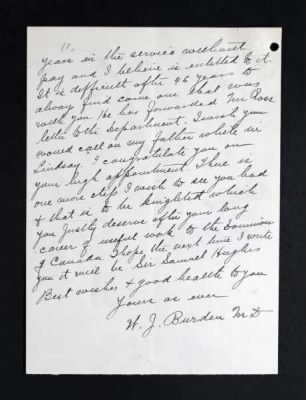 years in the service without
pay and I believe is entitled to it.
It is difficult after 46 years to
always find some one that was
with you. He has forwarded Mr Ross
letter to the Department. I wish you
would call on my father while in
Lindsay. I congratulate you on
your high appointment. There is
one more step I wish to see you had
+ that is to be knighted which
you justly deserve after your long
career of useful work to the Dominion
of Canada I hope the next time I write
you it will be Sir Samuel Hughes
Best wishes + good health to you
Yours as ever
W. J. Burden M D